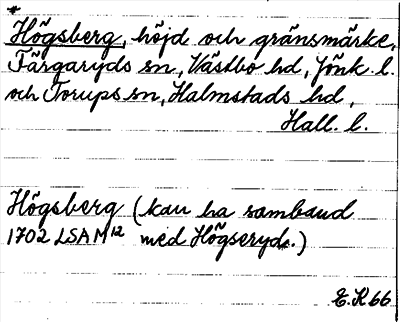 *
Högsberg, höjd och gränsmärke,
Färgaryds sn, Västbo hd, Jönk. l.
och Torups sn, Halmstads hd,
Hall. l.
Högsberg (kan ha samband
1702 LSA M12 med Högseryd.)
E.K 66